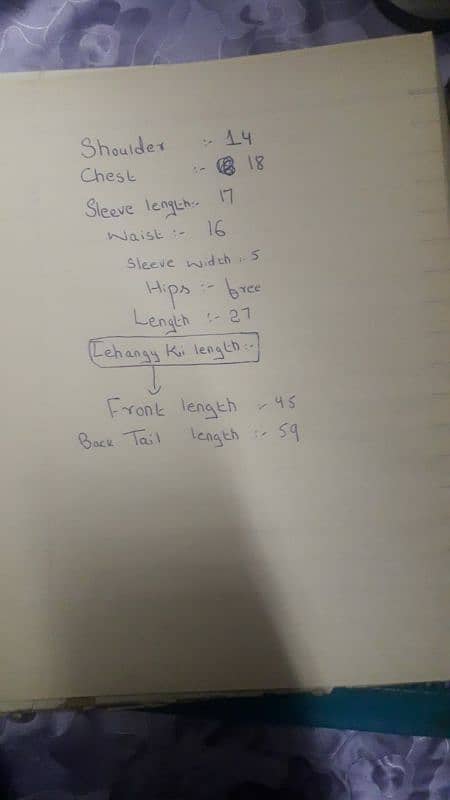 Shoulder :- 14
Chest :- 18
Sleeve length:- 17
Waist :- 16
Sleeve width :- 5
Hips :- free
Length :- 27
Lehangy Kii length:-
Front length :- 45
Back Tail length :- 59